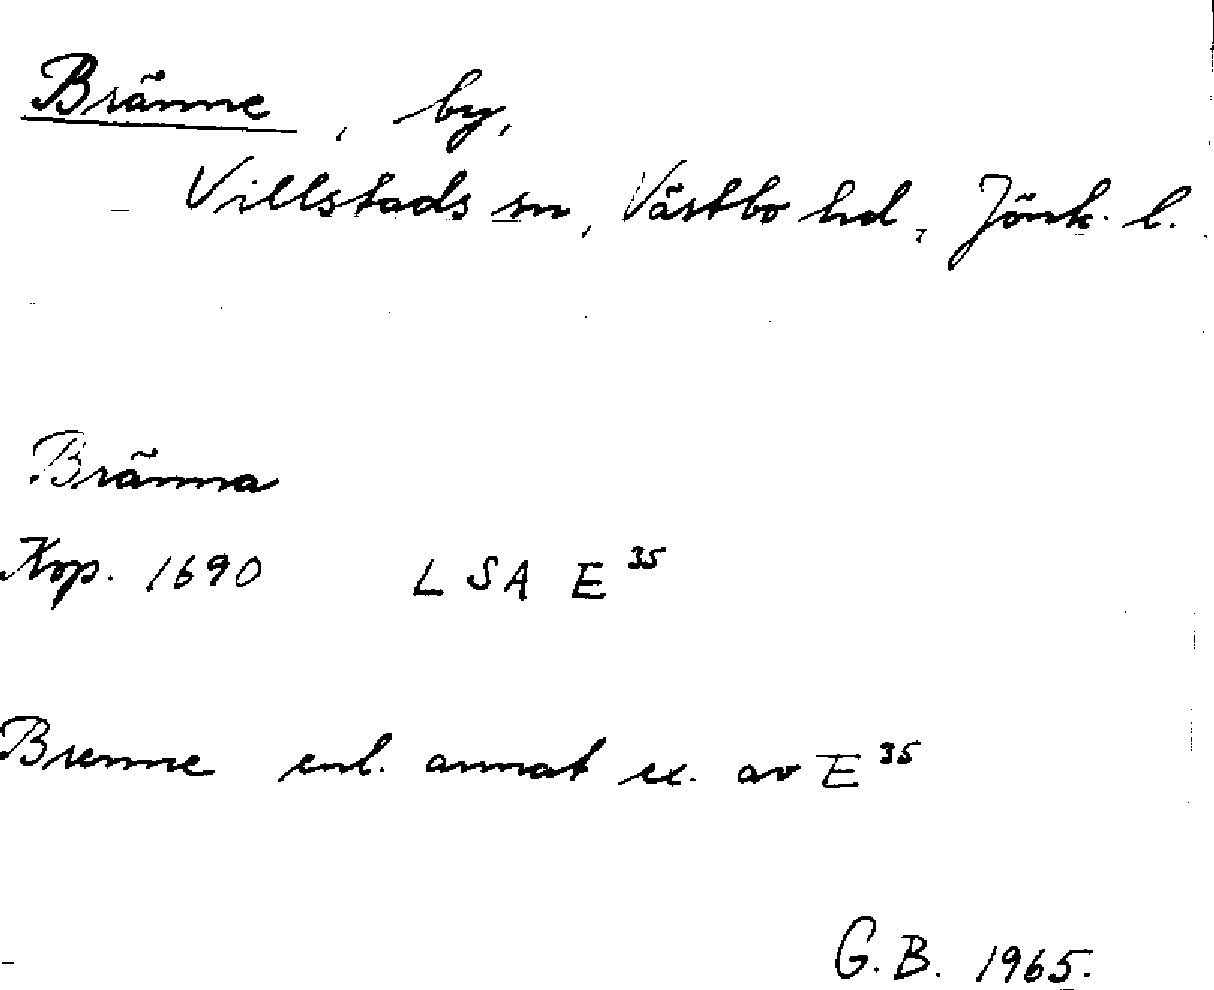 Bränne, by,
Villstads sn, Västbo hd, Jönk. l.
Bränna
Kop. 1690 LSA E 35
Brenne enl. annat ex. av E 35
G.B. 1965.